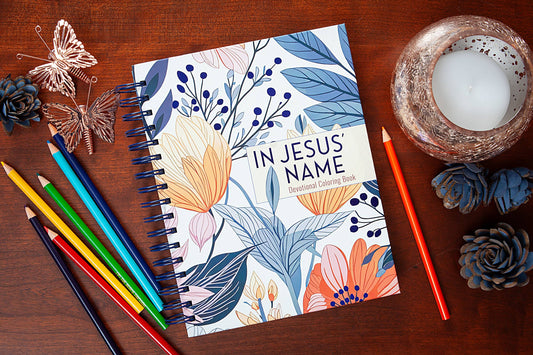 IN JESUS'
NAME
Devotional Coloring Book